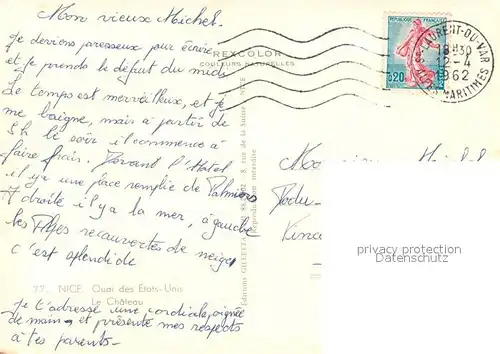 Mon vieux Michel.
Je deviens paresseux pour écrire
et je prends le défaut du midi
Le temps est merveilleux, et je
me baigne, mais à partir de
5h le soir il commence à
faire frais. Devant l'Hotel
il y a une place remplie de Palmiers
A droite il y a la mer, à gauche
les Alpes recouvertes de neige
c'est splendide
77. NICE. Quai des États-Unis
Le Château
Je t'adresse une cordiale poignée
de main et présente mes respects
à tes parents.
REXCOLOR
COULEURS NATURELLES
Editions GILETTA
8, rue de la Suisse - NICE
Reproduction interdite
REPUBLIQUE FRANÇAISE
0,20
POSTES
ST LAURENT-DU-VAR
18H30
12-4
1962
ALPES MARITIMES
privacy protection
Datenschutz